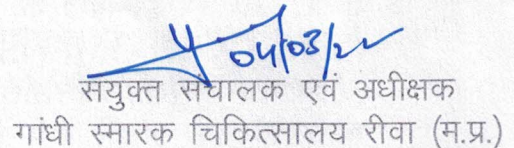 04/03/22
सयुक्त संचालक एवं अधीक्षक
गांधी स्मारक चिकित्सालय रीवा (म.प्र.)